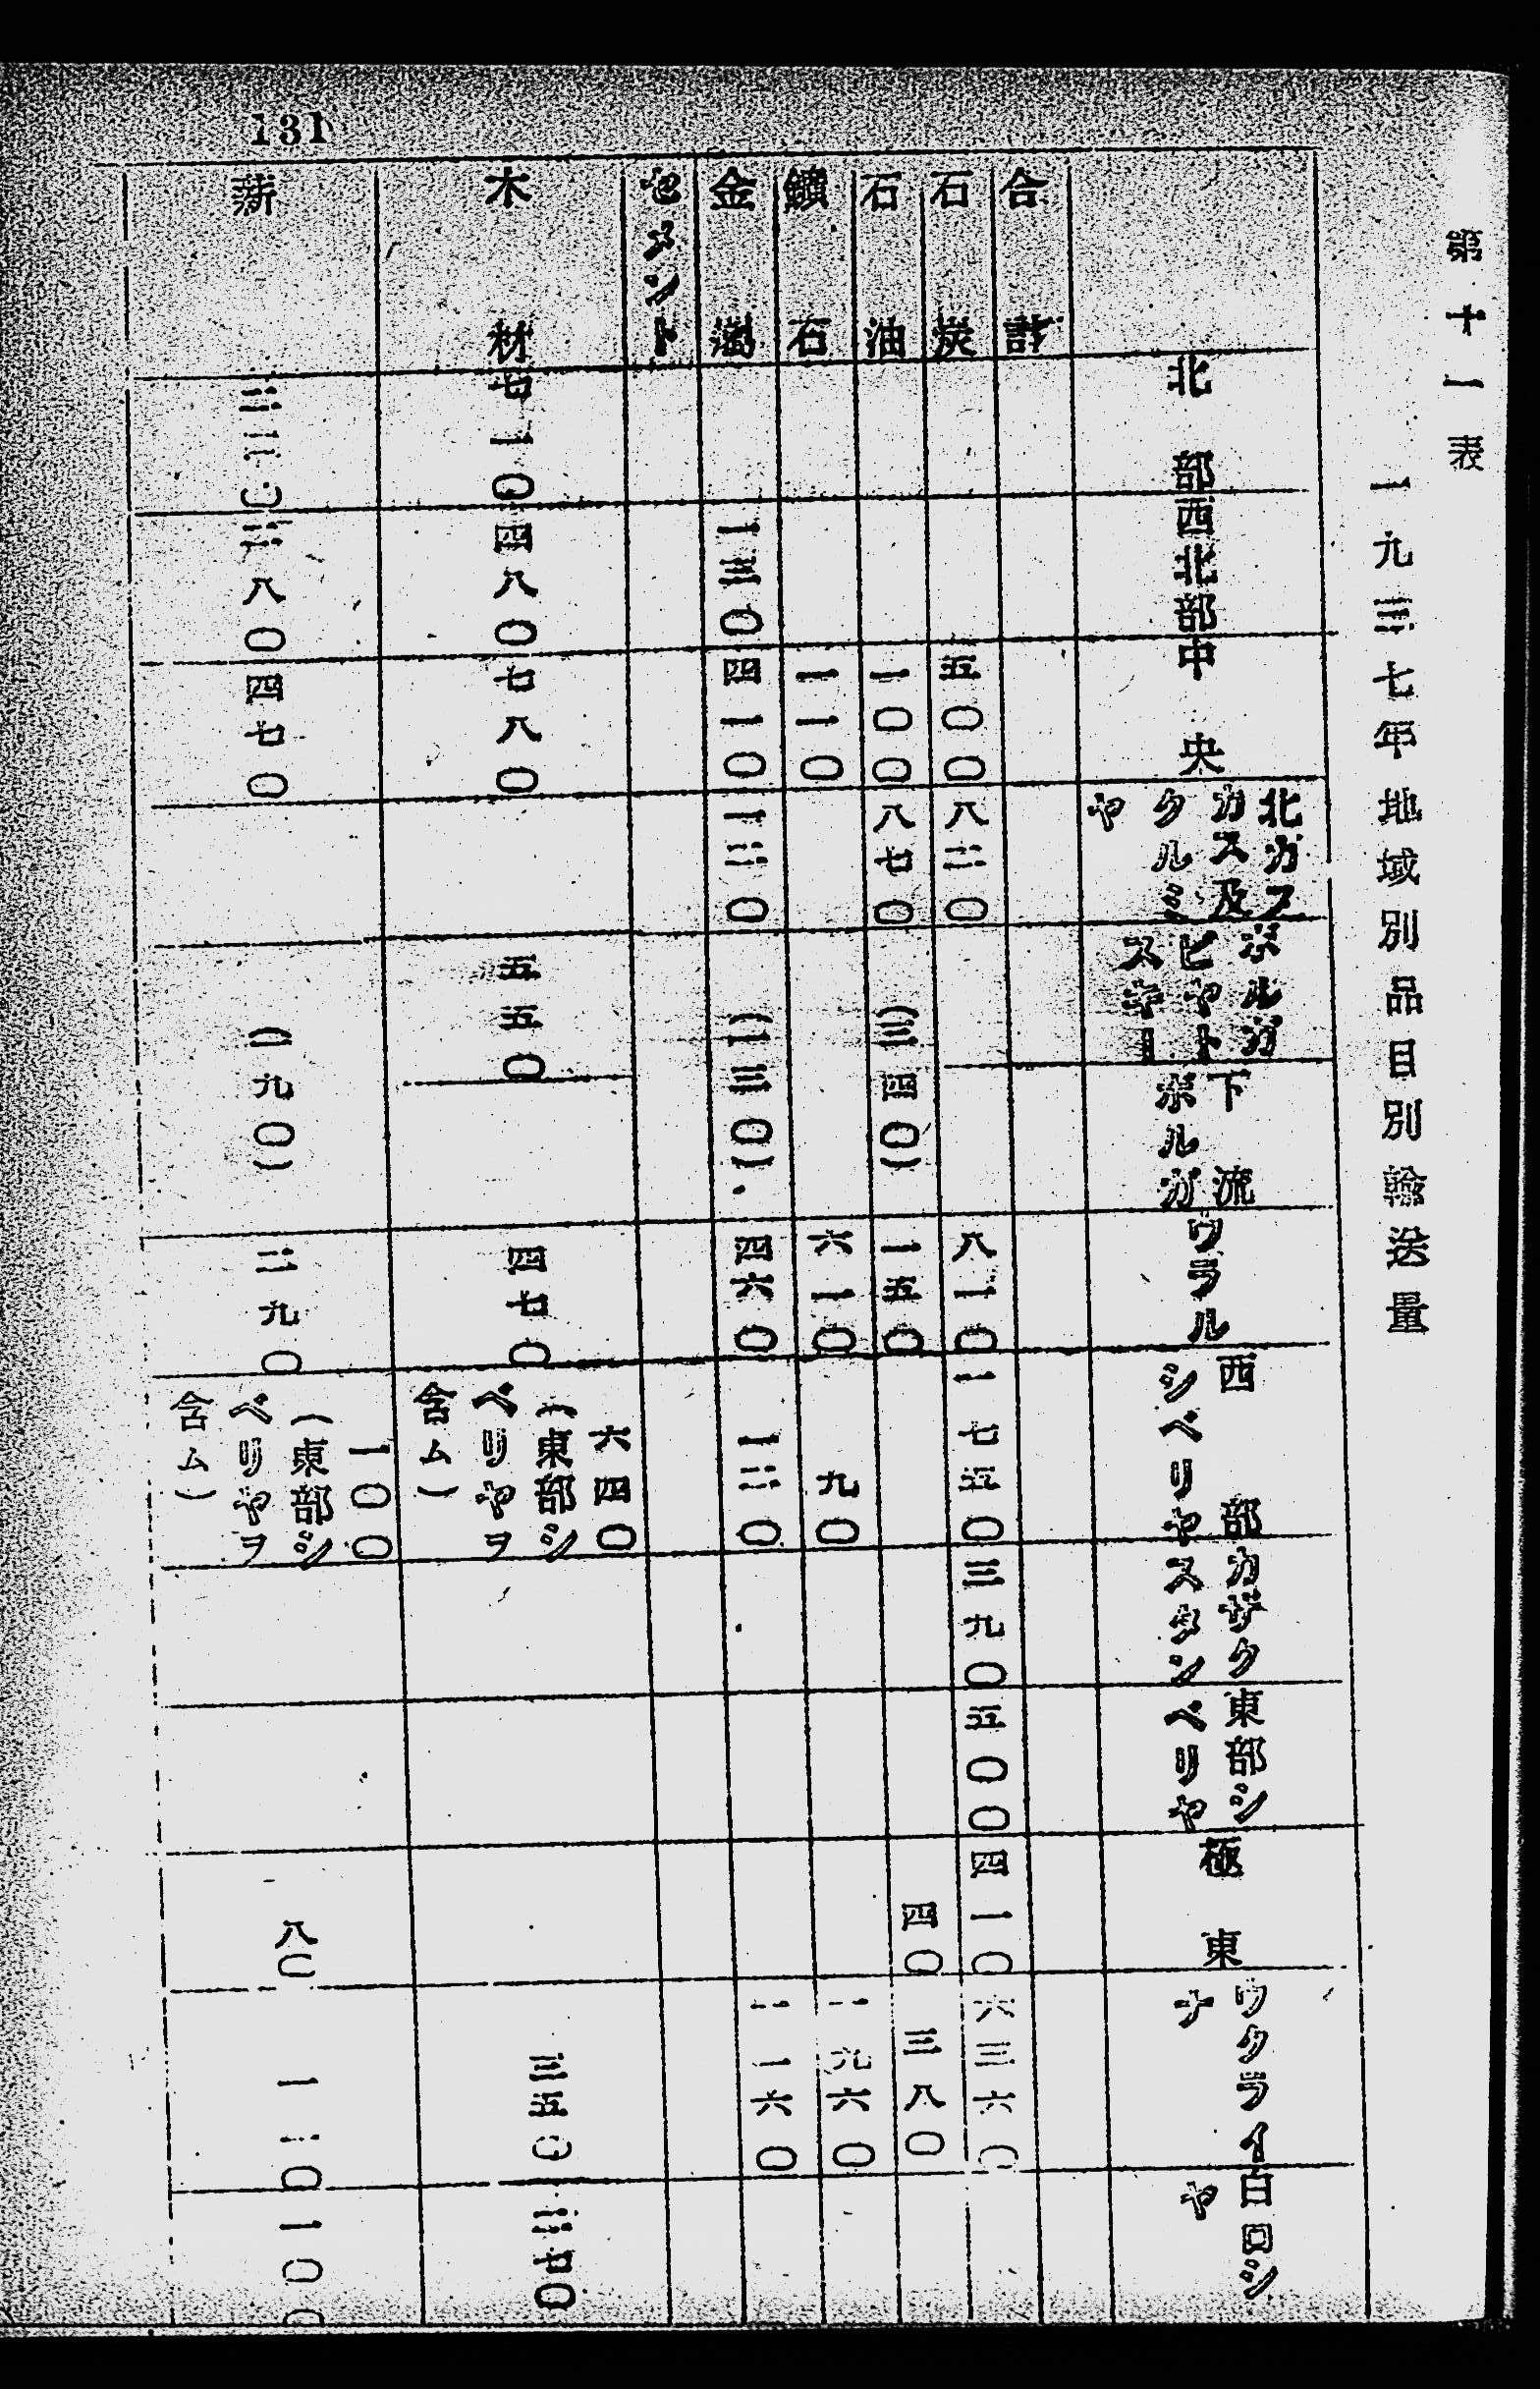 131
第十一表
一九三七年地域別品目別輸送量
北部
西北部
中央
北カフ
カス及
クルミ
ヤ
ボルガ
ビヤト
スキー
下流
ボルガ
ウラル
西部
シベリヤ
カザク
スタン
東部シ
ベリヤ
極東
ウクライ
ナ
白ロシ
ヤ
合計
石炭 五〇〇 八二〇 八一〇 一七五〇 三九〇 五〇〇 四一〇 六三六〇
石油 一〇〇 八七〇 (三四〇) 一五〇 四〇 三八〇
鑛石 一一〇 六一〇 九〇 一九六〇
金屬 一三〇 四一〇 一二〇 (二三〇) 四六〇 一二〇 一一六〇
セメント
木材 七一〇 四八〇 七八〇 五五〇 四七〇 六四〇
(東部シ
ベリヤヲ
含ム)
三五〇 二七〇
薪 四七〇 (一九〇) 二九〇 一〇〇
(東部シ
ベリヤヲ
含ム)
八〇 一〇〇